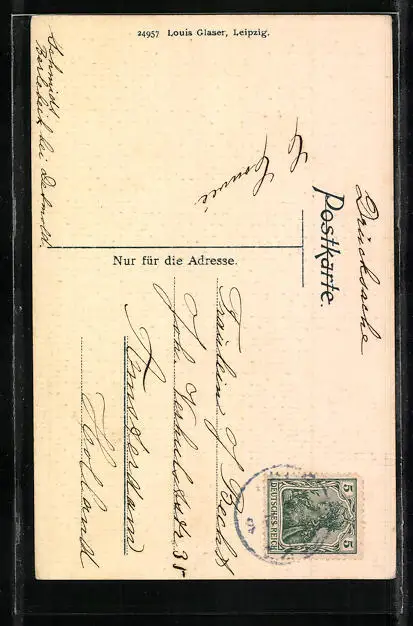 Drucksache
Postkarte.
24957 Louis Glaser, Leipzig.
Nur für die Adresse.
Fräulein J Becht
Joh. Verhulststr 38
Amsterdam
Holland
Schmidt
bei Detmold.
5 5
DEUTSCHES REICH